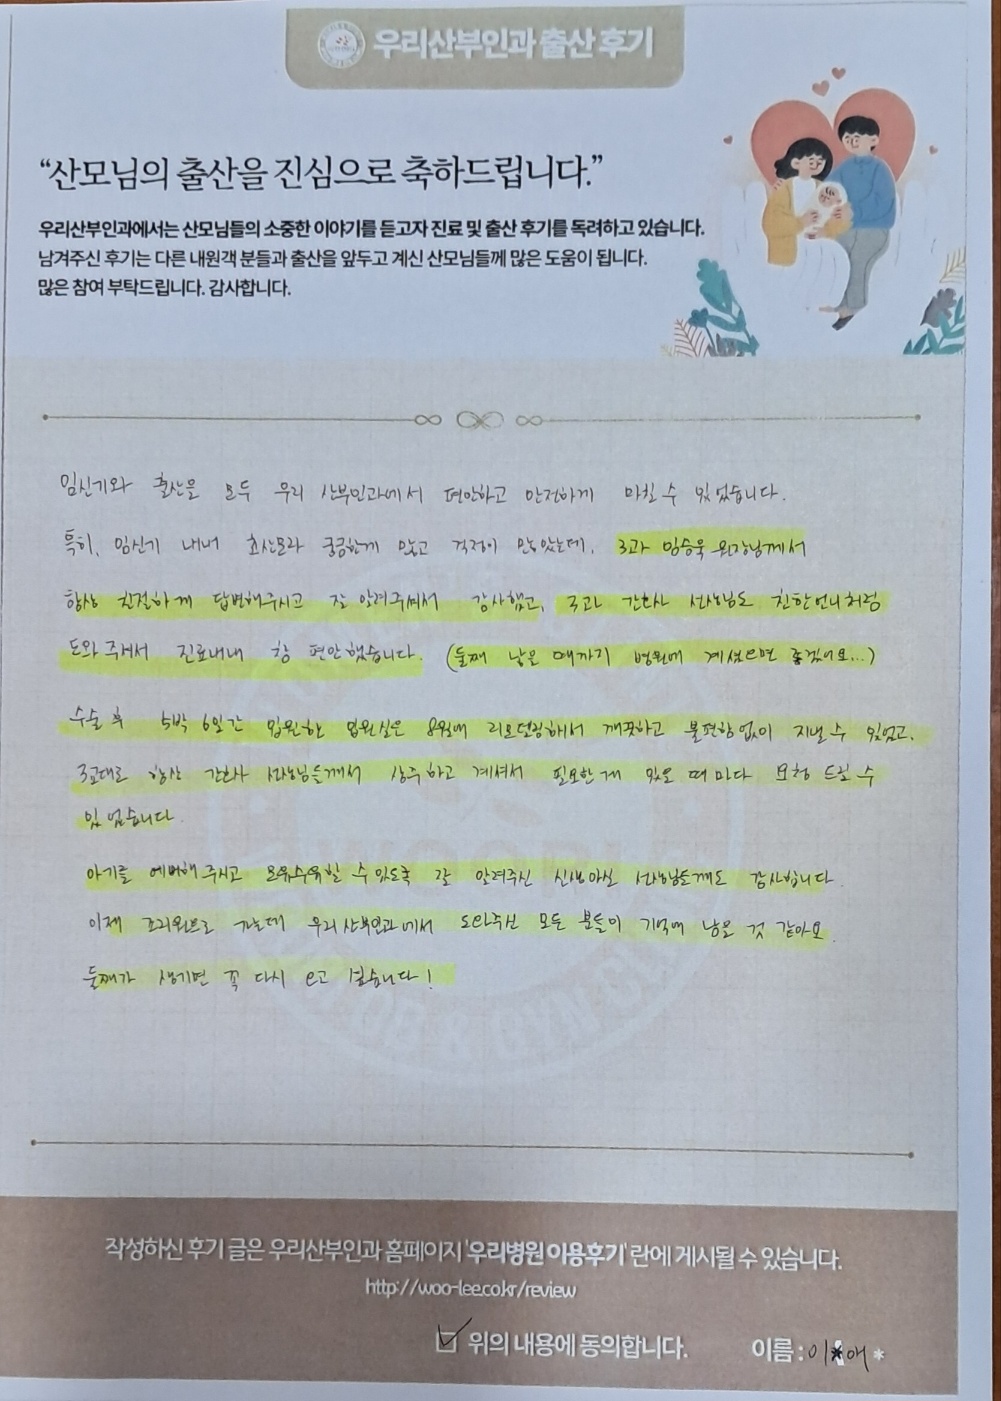 우리산부인과 출산 후기
“산모님의 출산을 진심으로 축하드립니다.”
우리산부인과에서는 산모님들의 소중한 이야기를 듣고자 진료 및 출산 후기를 독려하고 있습니다.
남겨주신 후기는 다른 내원객 분들과 출산을 앞두고 계신 산모님들께 많은 도움이 됩니다.
많은 참여 부탁드립니다. 감사합니다.
임신기와 출산을 모두 우리 산부인과에서 편안하고 안전하게 마칠 수 있었습니다.
특히, 임신기 내내 초산모라 궁금한게 많고 걱정이 많았는데, 3과 임승욱 원장님께서
항상 친절하게 답변해주시고 잘 알려주셔서 감사했고, 3과 간호사 선생님도 친한언니처럼
도와주셔서 진료내내 참 편안했습니다. (둘째 낳을 때까지 병원에 계셨으면 좋겠어요...)
수술 후 5박 6일간 입원한 입원실은 8월에 리모델링해서 깨끗하고 불편함없이 지낼 수 있었고,
3교대로 항상 간호사 선생님들께서 상주하고 계셔서 필요한게 있을 때마다 요청 드릴 수
있었습니다.
아기를 예뻐해주시고 모유수유할 수 있도록 잘 알려주신 신생아실 선생님들께도 감사합니다.
이제 조리원으로 가는데 우리산부인과에서 도와주신 모든 분들이 기억에 남을 것 같아요.
둘째가 생기면 꼭 다시 오고 싶습니다!
OB & GYN
작성하신 후기 글은 우리산부인과 홈페이지 '우리병원 이용후기' 란에 게시될 수 있습니다.
http://woo-lee.co.kr/review
위의 내용에 동의합니다. 이름 : 이*애 *